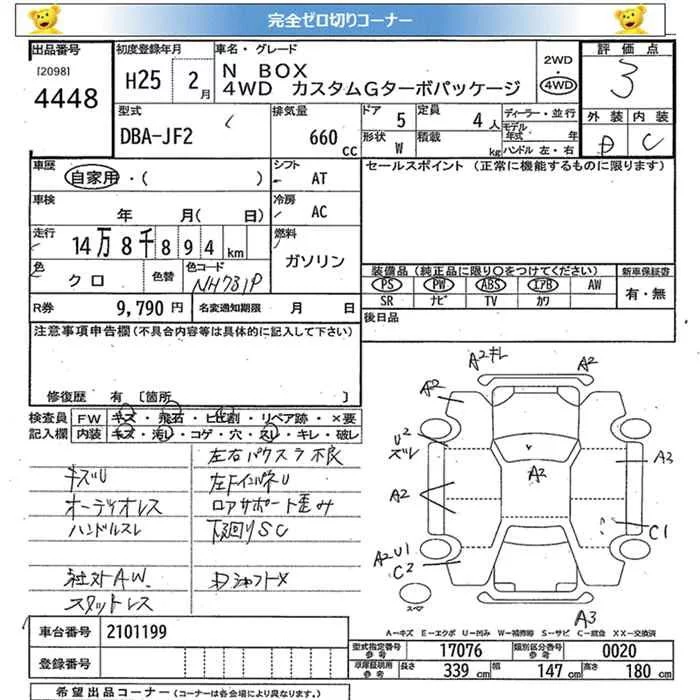 完全ゼロ切りコーナー
出品番号 初度登録年月 車名・グレード 評価点
[2098] 4448 H25 2月
N BOX
4WD カスタムGターボパッケージ
2WD
4WD
3
外装 内装
D C
型式 排気量 ドア 定員 ディーラー・並行
DBA-JF2 660cc 5 4人
形状 積載 モデル年式 年
W kg ハンドル 左・右
車歴 シフト セールスポイント (正常に機能するものに限ります)
自家用・( ) AT
車検 冷房
年 月( 日) AC
走行 燃料
14万8千894km ガソリン
色 色替 色コード
クロ NH731P
装備品(純正品に限り○をつけてください) 新車保証書
PS PW ABS エアB AW 有・無
SR ナビ TV カワ
R券 9,790円 名変通知期限 月 日
後日品
注意事項申告欄(不具合内容等は具体的に記入して下さい)
修復歴 有 [箇所 ]
検査員 FW キズ・飛石・ヒビ割・リペア跡・×要
記入欄 内装 キズ・汚レ・コゲ・穴・スレ・キレ・破レ
左右パワスラ不良
キズU 左FインパネU
オーディオレス ロアサポート歪み
ハンドルスレ 下回りSC
社外AW. Dシャフト×
スタットレス
A2キレ A2
A2
U2
ズレ
A2
A3
A2
C1
A2U1
C2
スペ
A3
A-キズ E-エクボ U-凹み W-補修跡 S-サビ C-腐食 XX-交換済
車台番号 2101199
登録番号
型式指定番号 参考 17076 類別区分番号 参考 0020
車庫証明用 参考 長さ 339cm 幅 147cm 高さ 180cm
希望出品コーナー (コーナーは各会場により異なります。)